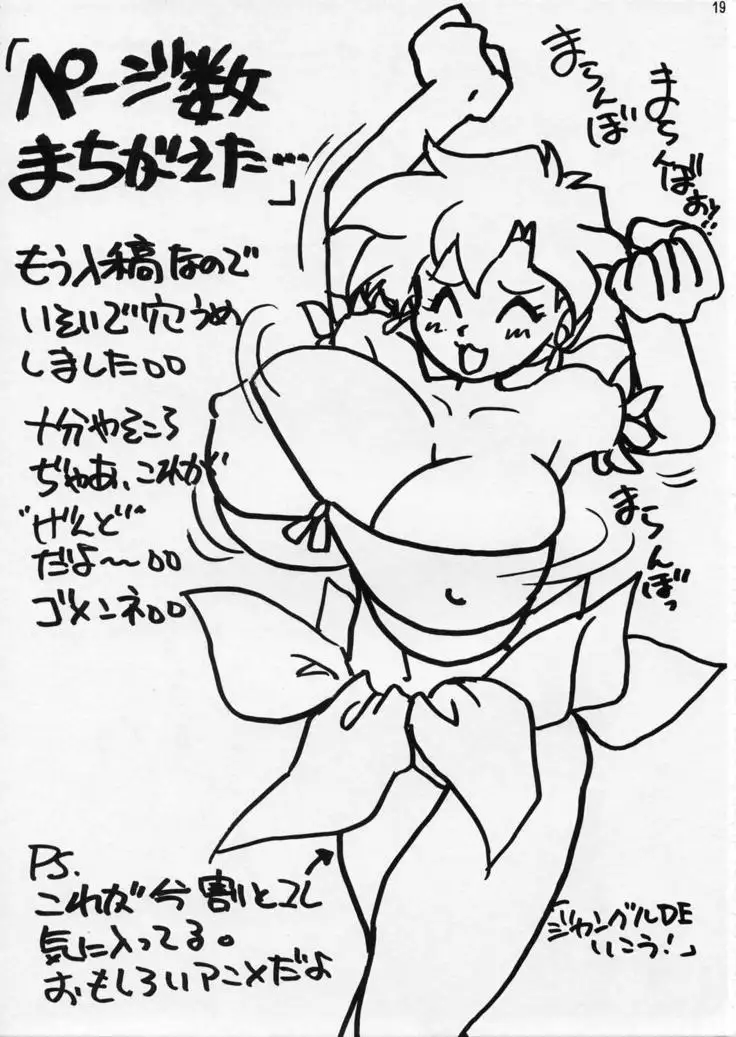 19
「ページ数
まちがえた…」
もう入稿なので
いそいで穴うめ
しました〇〇
十分やそころ
ぢゃあ、これが
"げんど"
だよ〜〇〇
ゴメンネ〇〇
まらんぼ
まらんばおッ!!
まらんぼっ
PS.
これが今割とコレ
気に入ってる。
おもしろいアニメだよ
「ジャングルDE
いこう!」